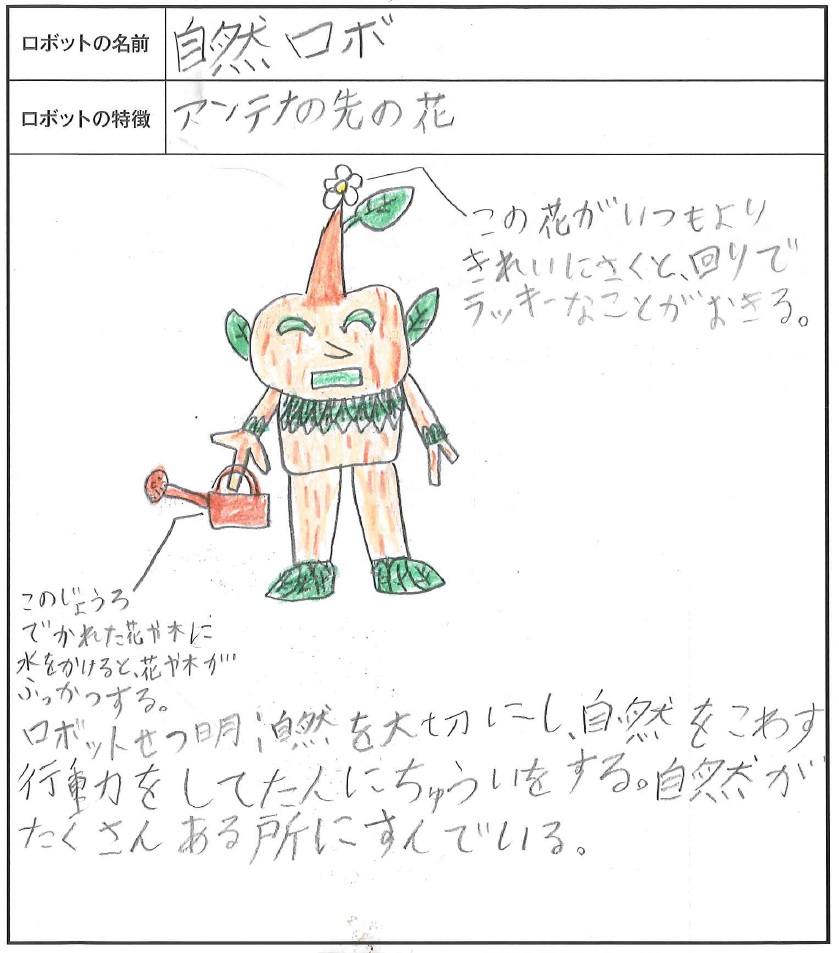 ロボットの名前
自然ロボ
ロボットの特徴
アンテナの先の花
この花がいつもより
きれいにさくと、回りで
ラッキーなことがおきる。
このじょうろ
でかれた花や木に
水をかけると、花や木が
ふっかつする。
ロボットせつ明:自然を大切にし、自然をこわす
行動をしてたんにちゅういをする。自然が
たくさんある所にすんでいる。